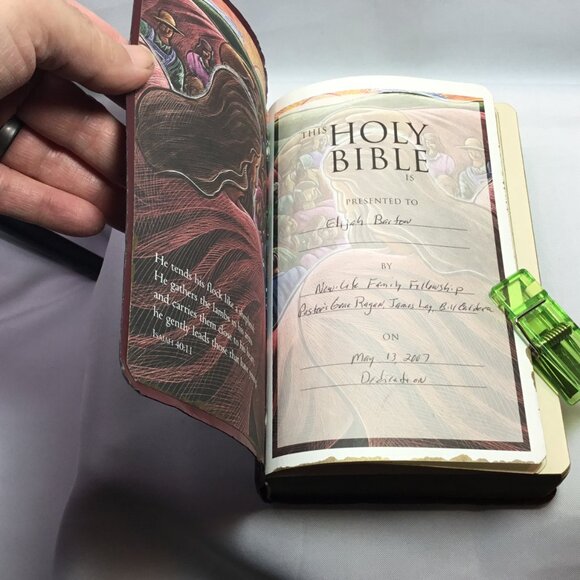 He tends his flock like
He gathers the lambs in
and carries them close to
he gently leads those that have
ISAIAH 40:11
THIS HOLY
BIBLE
IS
PRESENTED TO
Elijah Barton
BY
New-Life Family Fellowship
Pastor's Gene Ragan, James Lay, Bill
ON
May 13, 2007
Dedication